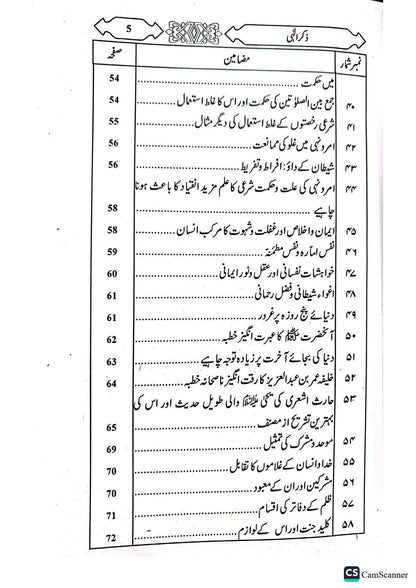 ذکر الٰہی 5
نمبر شمار مضامین صفحہ
میں حکمت ........ 54
۴۰ جمع بین الصلوٰتین کی حکمت اور اس کا غلط استعمال ........ 54
۴۱ شرعی رخصتوں کے غلط استعمال کی دیگر مثال ........ 55
۴۲ امر و نہی میں غلو کی ممانعت ........ 56
۴۳ شیطان کے داؤ: افراط و تفریط ........ 56
۴۴ امر و نہی کی علت و حکمت شرعی کا علم مزید انقیاد کا باعث ہونا
چاہیے ........ 58
۴۵ ایمان و اخلاص اور غفلت و شہوت کا مرکب انسان ........ 58
۴۶ نفس امارہ و نفس مطمئنہ ........ 59
۴۷ خواہشات نفسانی اور عقل و نور ایمانی ........ 60
۴۸ اغواء شیطانی و فضل رحمانی ........ 61
۴۹ دنیائے پنج روزہ پر غرور ........ 61
۵۰ آنحضرت ﷺ کا عبرت انگیز خطبہ ........ 62
۵۱ دنیا کی بجائے آخرت پر زیادہ توجہ چاہیے ........ 63
۵۲ خلیفہ عمر بن عبدالعزیز کا رقت انگیز ناصحانہ خطبہ ........ 64
۵۳ حارث اشعری کی یحییٰ علیہ السلام والی طویل حدیث اور اس کی
بہترین تشریح از مصنف ........ 65
۵۴ موحد و مشرک کی تمثیل ........ 69
۵۵ خدا و انسان کے غلاموں کا تقابل ........ 70
۵۶ مشرکین اور ان کے معبود ........ 70
۵۷ ظلم کے دفاتر کی اقسام ........ 71
۵۸ کلید جنت اور اس کے لوازم ........ 72
CS CamScanner